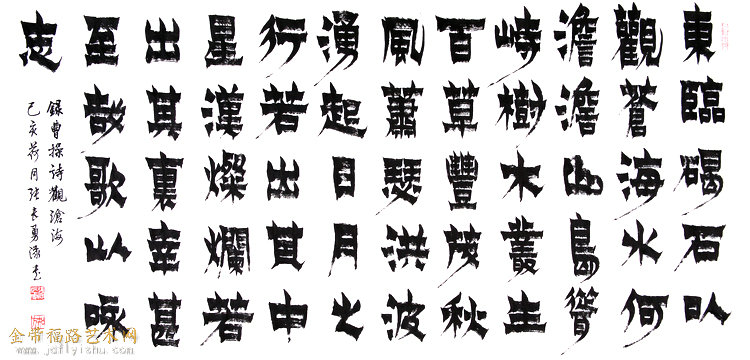 東臨碣石以
觀蒼海水何
澹澹山島聳
峙樹木叢生
百草豐茂秋
風蕭瑟洪波
湧起日月之
行若出其中
星漢燦爛若
出其裏幸甚
至哉歌以咏
志
錄曹操詩觀滄海
己亥荷月张長勇
金带福路艺术网
www.jdflyishu.com